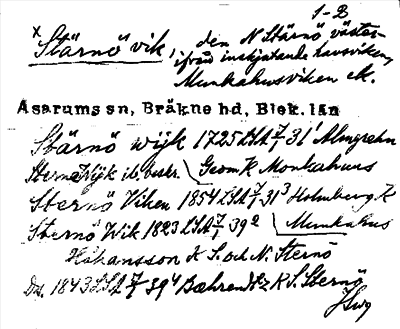 1-2
x Stärnö vik, den N Stärnö väster-
ifrån inskjutande havsviken,
Munkahusviken ek.
Asarums sn, Bräkne hd, Blek. län
Stärnö wijk 1725 LSA 7/1 31¹ Almgrehn
Sterne Wijk ib. beskr. Geom K Monkahuus
Sternö Viken 1854 LSA 7/1 31³ Holmberg K
Sternö Wik 1823 LSA 7/1 39² Munkahus
Håkansson K S. och N. Sternö
Do. 1843 LSA 7/1 39⁴ Bæhrendtz K S. Sternö